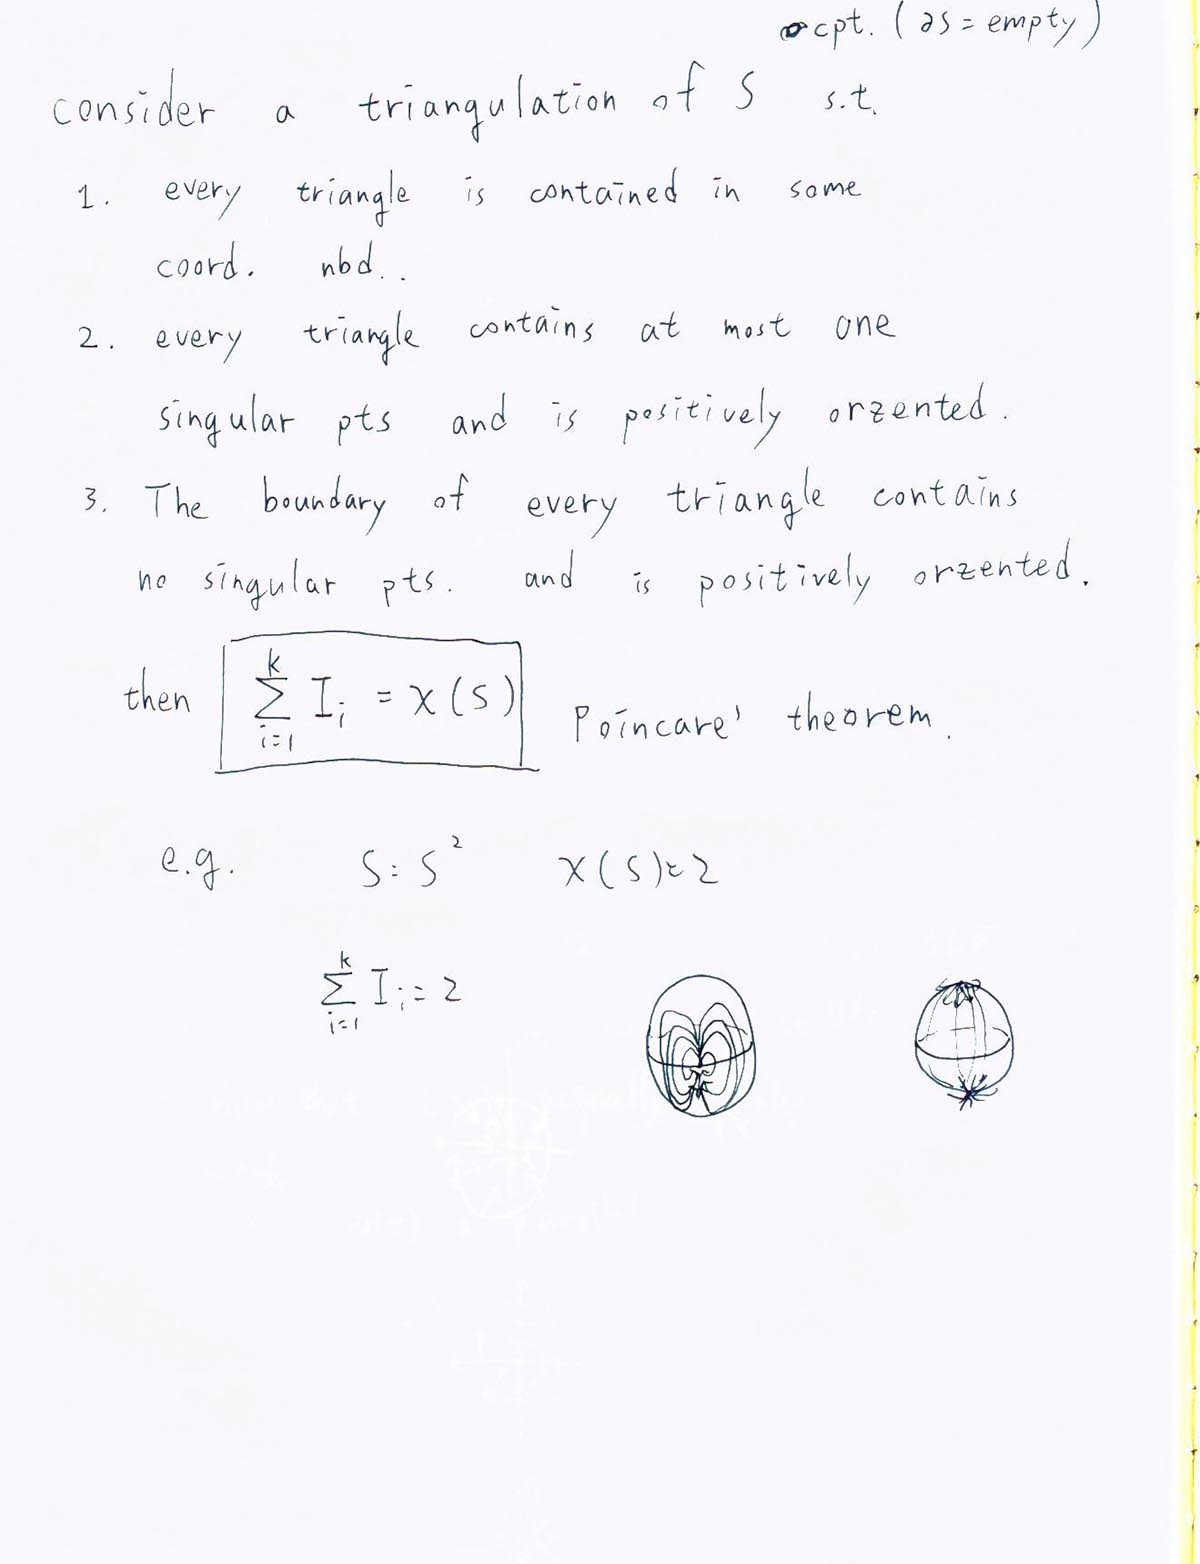 cpt. (∂S = empty)
consider a triangulation of S s.t.
1. every triangle is contained in some
coord. nbd..
2. every triangle contains at most one
singular pts and is positively orzented.
3. The boundary of every triangle contains
no singular pts. and is positively orzented.
then ∑_{i=1}^{k} I_i = χ(S) Poincare' theorem.
e.g. S = S² χ(S) = 2
∑_{i=1}^{k} I_i = 2